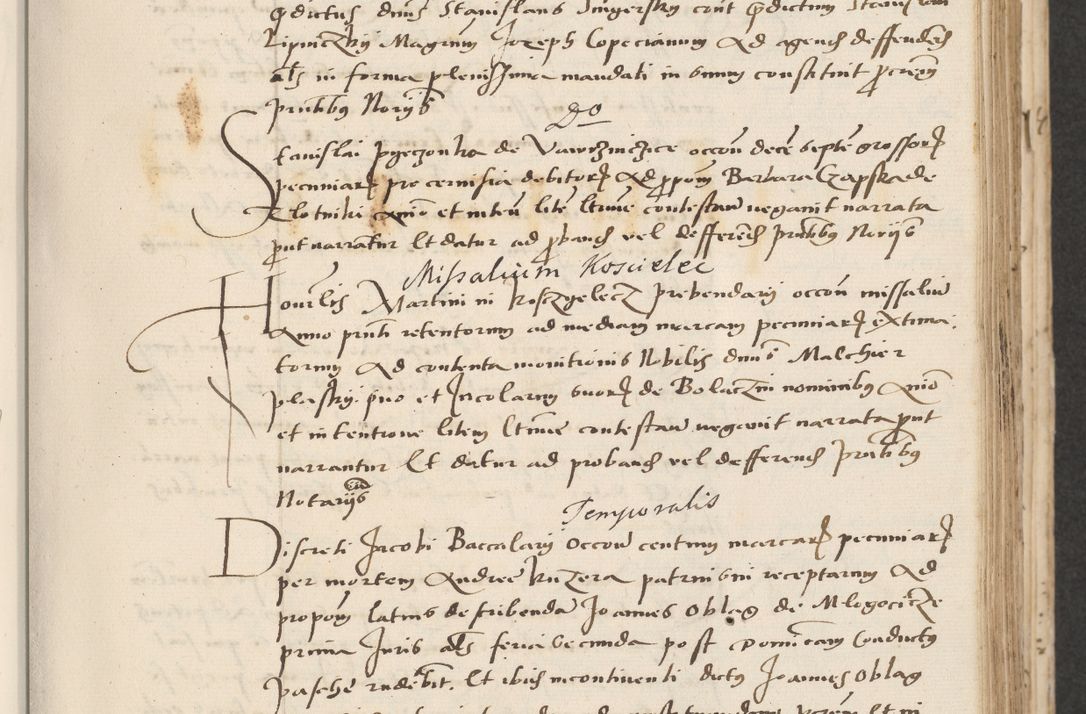 predictus dnus Stanislaus Jugersky cont predictum Stanislaum
Lipniczky Magrum Jozeph Copecianum Ad agend deffendend
als in forma plenissima mandati in unum constituit procrem
pntibus Noriis
Do
Stanislai pgeczonka de Vawrzinczice occon decem septem grossorum
pecuniarum pro cervisia debitorum Ad ppom Barbara Czapska de
Zlotniki animo et inten litem ltime contestan negavit narrata
put narrantur Et datur ad proband vel defferend pntibus Noriis
Missalium Koscielec
Hourlis Martini in Koszczgelecz prebendarii occon missalium
Anno pnti retentorum ad mediam marcam pecuniarum extima,
torum Ad contenta monitionis Nobilis dnus Malchier
plasky suo et Incolarum suorum de Bolaczin nominibus animo
et intentione litem ltime contestan negavit narrata prout
narrantur Et datur ad proband vel defferend pntibus
Notariis
Temporalis
Discreti Jacobi Baccalarii occon centum marcarum pecuniarum
per mortem Andree Kuzera patrui sui receptarum Ad
propom latius describenda Joannes Oblag de Mlogocicze
prima Juris als feria secunda post Dominicam Conductus
Pasche rndebit. Et ibid incontinenti dictus Joannes Oblag